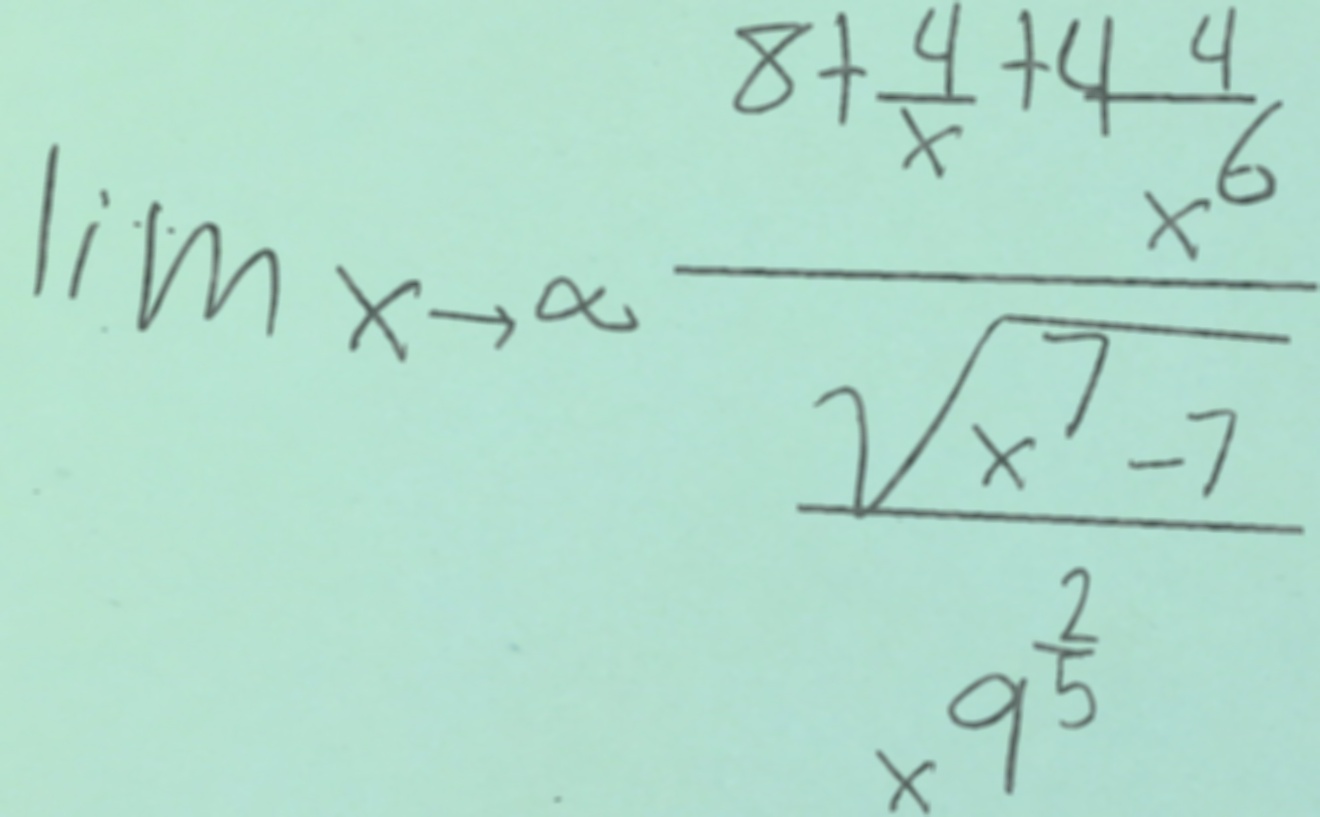 lim x→∝ \frac{8+\frac{4}{x}+\frac{44}{x^6}}{\frac{\sqrt{x^7-7}}{x^{9^{\frac{2}{5}}}}}